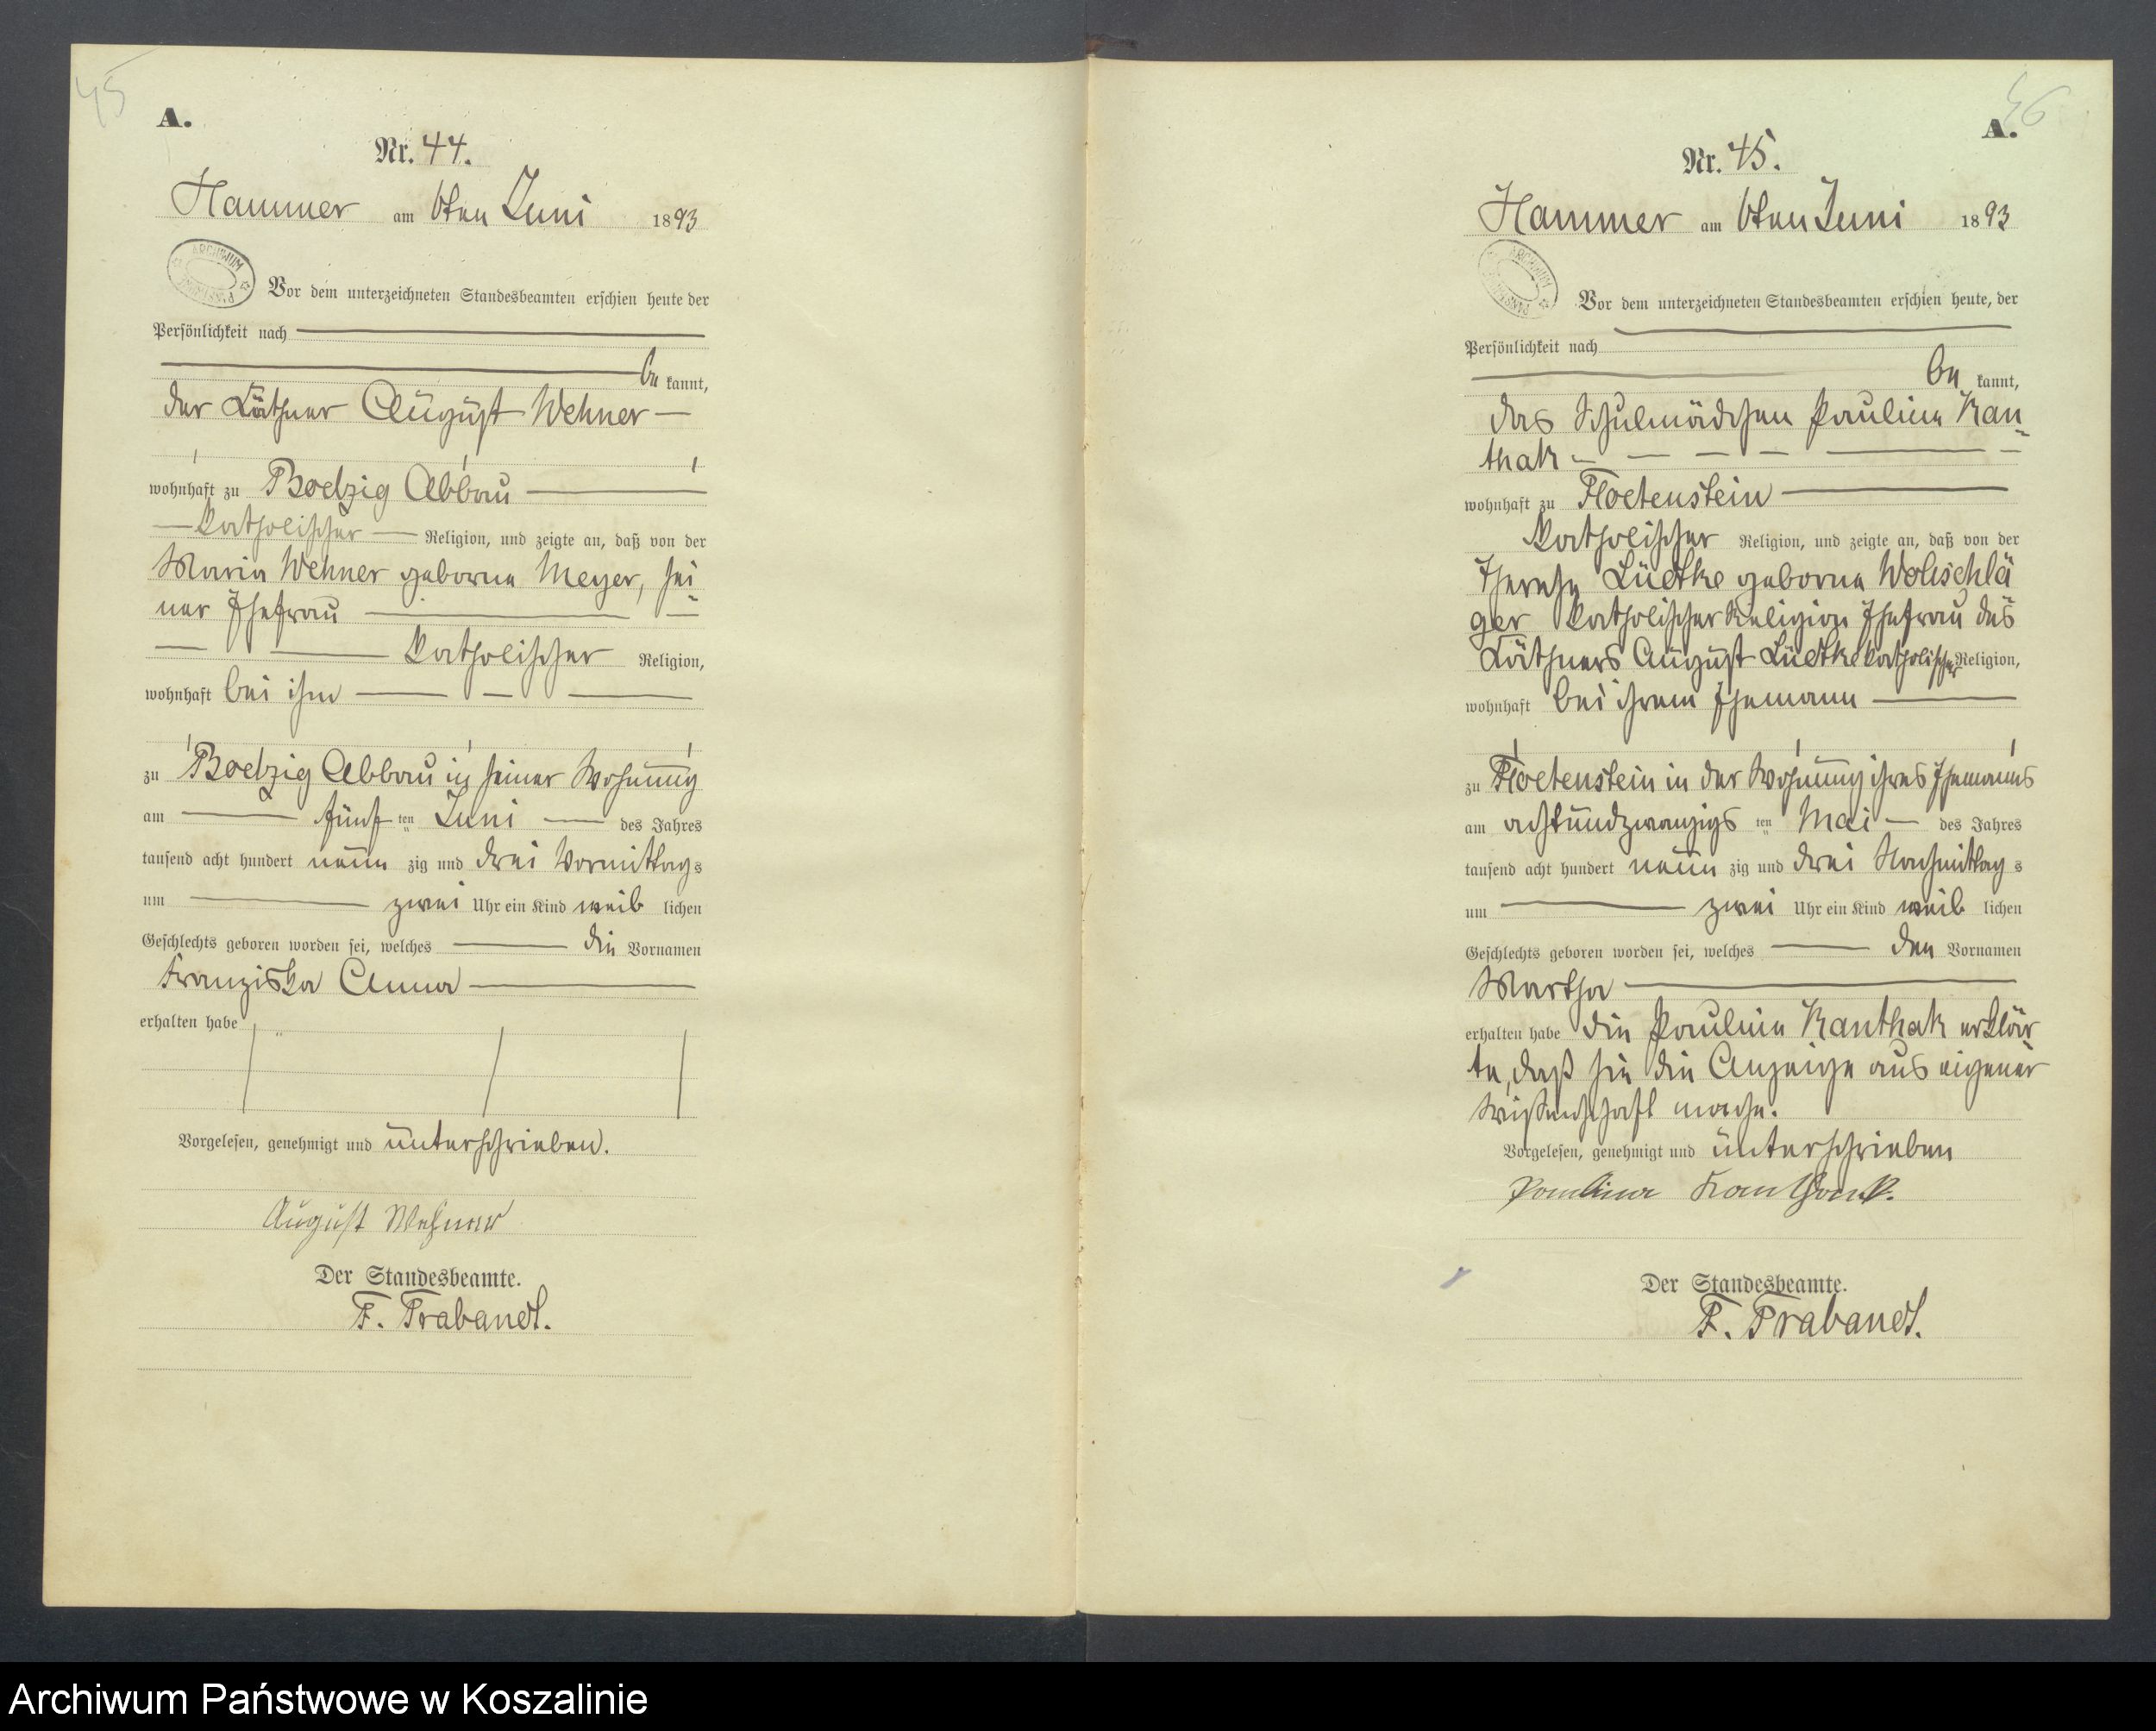 45
A.
Nr. 44.
Hammer am 6ten Juni 1893
ARCHIWUM
Vor dem unterzeichneten Standesbeamten erschien heute der
Persönlichkeit nach
be kannt,
der Käthner August Wehner
wohnhaft zu Boelzig Abbau
katholischer Religion, und zeigte an, daß von der
Maria Wehner geborne Meyer, sei
ner Ehefrau
katholischer Religion,
wohnhaft bei ihm
zu Boelzig Abbau in seiner Wohnung
am fünf ten Juni des Jahres
tausend acht hundert neun zig und drei Vormittag s
um zwei Uhr ein Kind weib lichen
Geschlechts geboren worden sei, welches die Vornamen
Franziska Anna
erhalten habe
Vorgelesen, genehmigt und unterschrieben.
August Wehner
Der Standesbeamte.
F. Trabandt.
46
A.
Nr. 45.
Hammer am 6ten Juni 1893
ARCHIWUM
Vor dem unterzeichneten Standesbeamten erschien heute, der
Persönlichkeit nach
be kannt,
das Schulmädchen Pauline Kan-
thak
wohnhaft zu Floetenstein
katholischer Religion, und zeigte an, daß von der
Therese Lüdtke geborne Wollschlä
ger katholischer Religion Ehefrau des
Käthners August Lüdtke katholischer Religion,
wohnhaft bei ihrem Ehemann
zu Floetenstein in der Wohnung ihres Ehemanns
am achtundzwanzigs ten Mai des Jahres
tausend acht hundert neun zig und drei Nachmittag s
um zwei Uhr ein Kind weib lichen
Geschlechts geboren worden sei, welches den Vornamen
Martha
erhalten habe die Pauline Kanthak erklär
te, daß sie die Anzeige aus eigener
Wissenschaft mache.
Vorgelesen, genehmigt und unterschrieben
Paulina Kanthak.
Der Standesbeamte.
F. Trabandt.
Archiwum Państwowe w Koszalinie